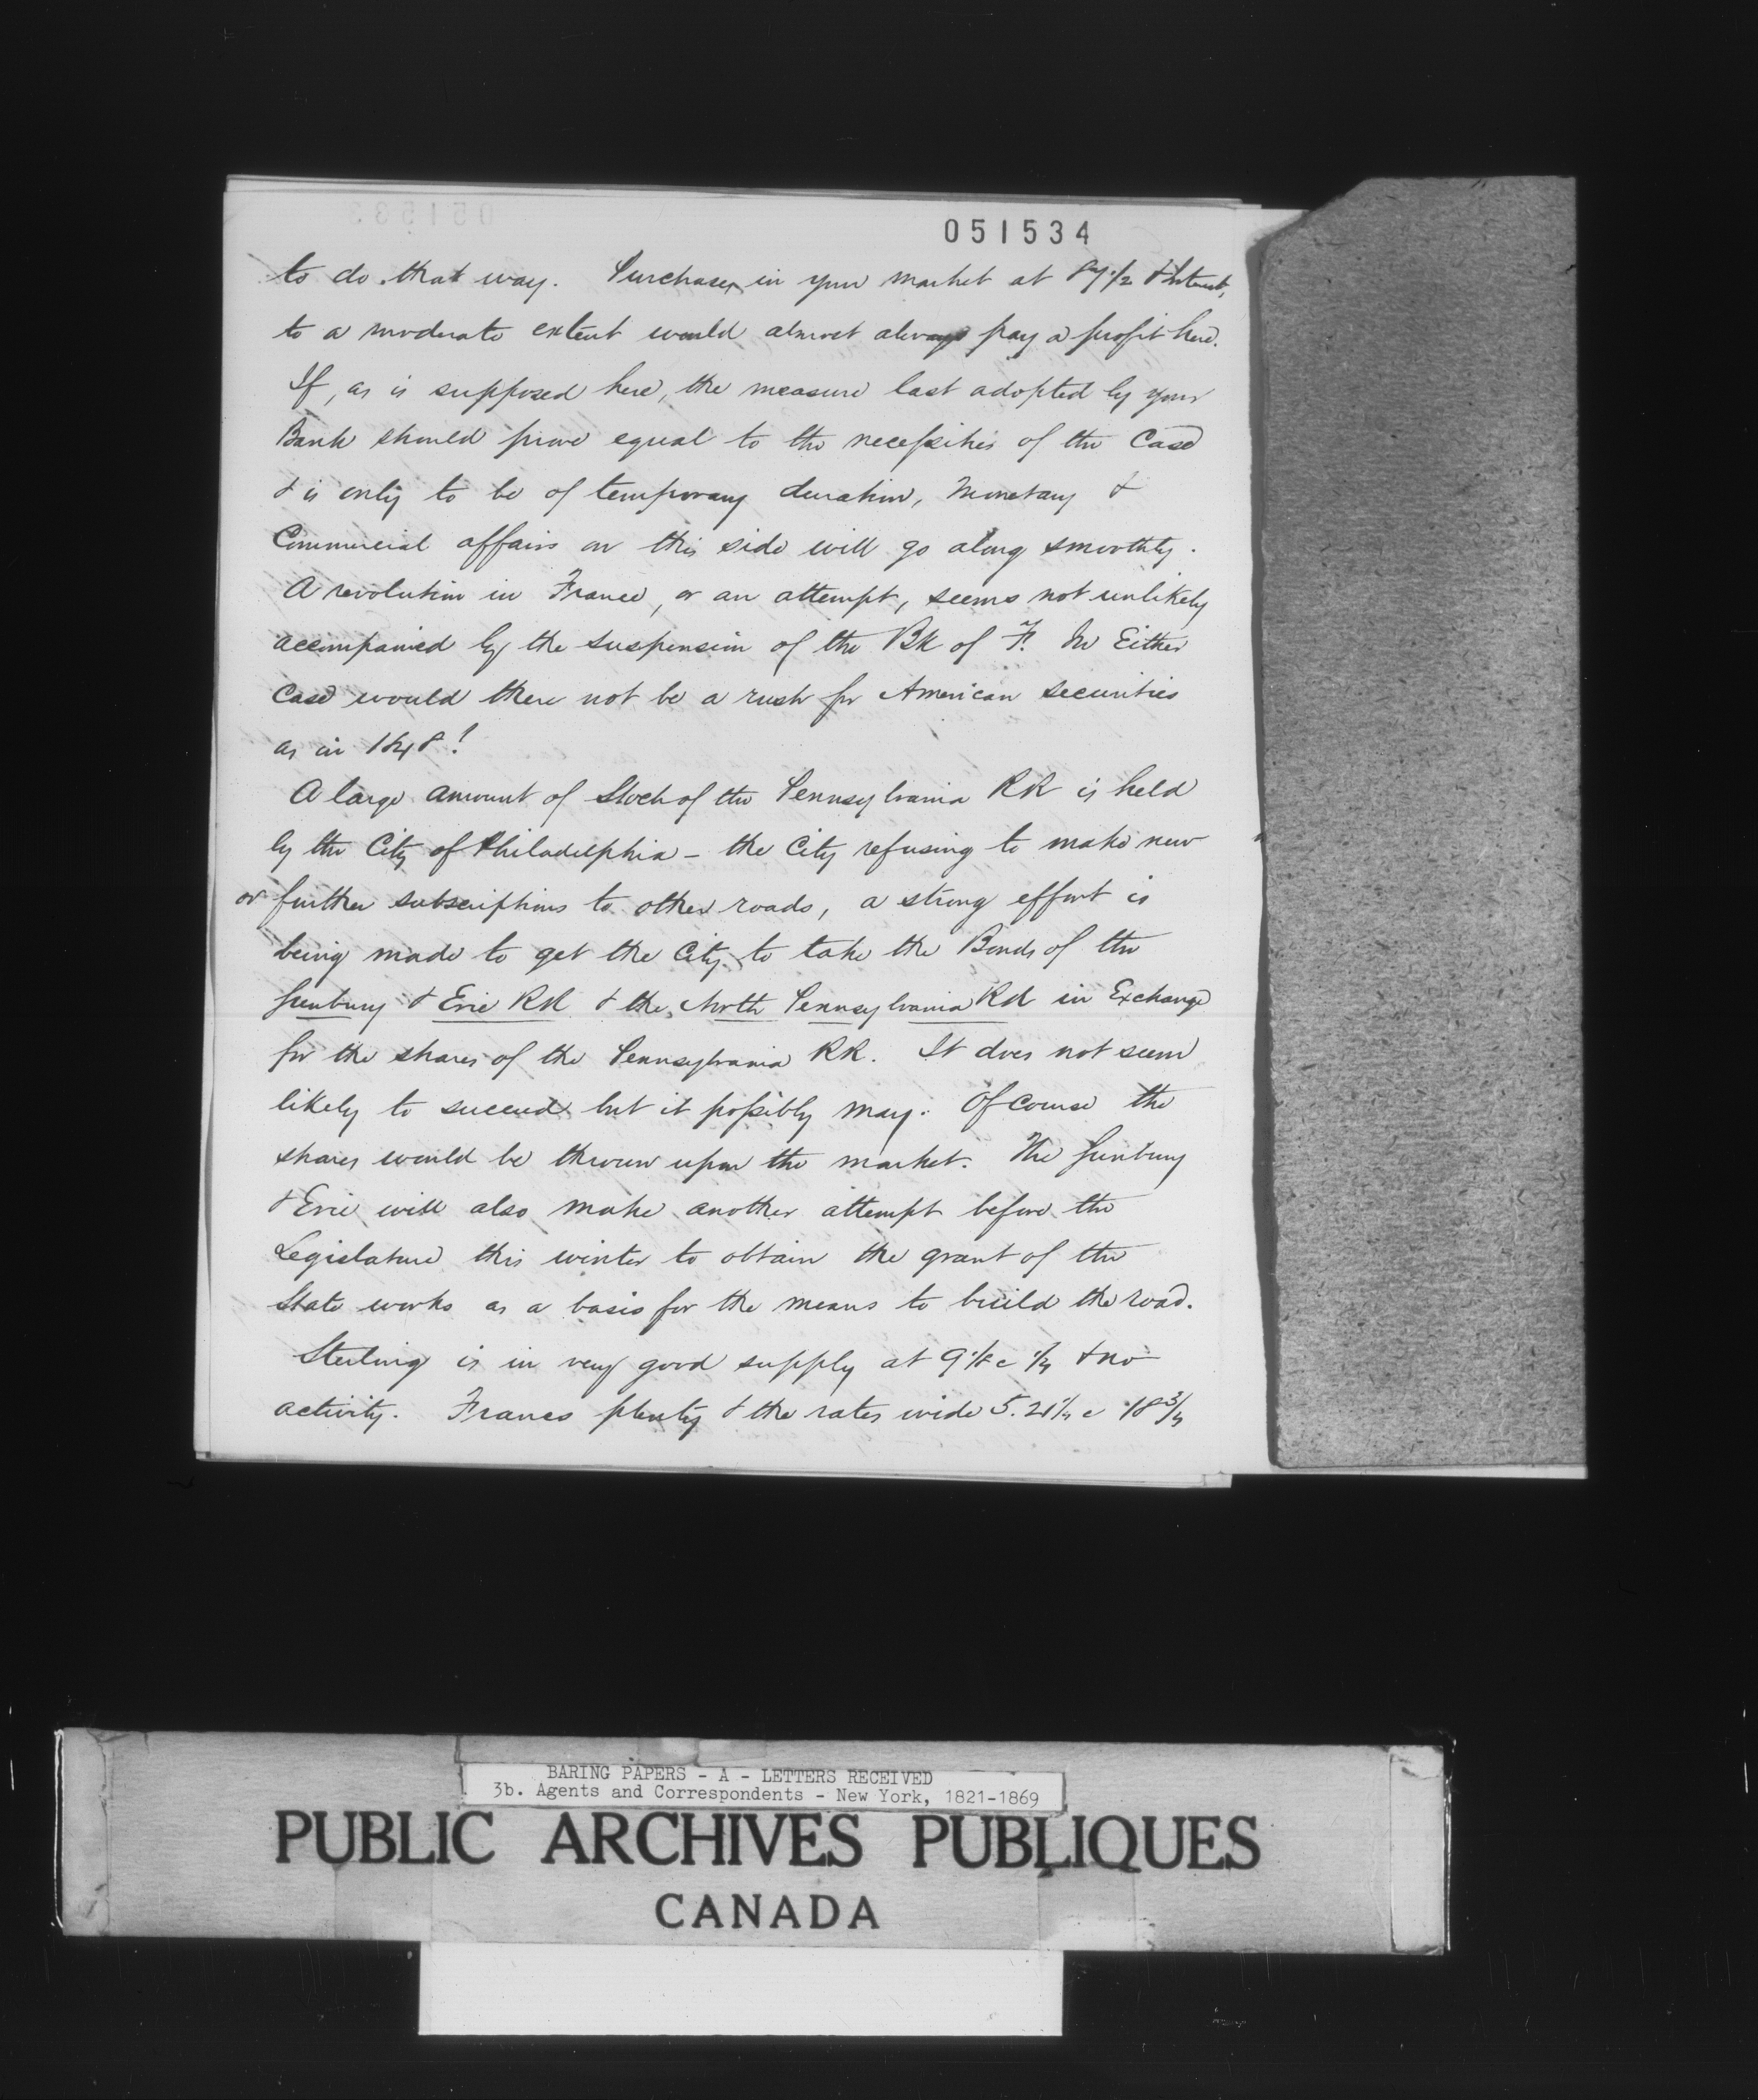 051534
to do that way. Purchases in your market at 87 1/2 & Interest,
to a moderate extent would almost always pay a profit here.
If, as is supposed here, the measure last adopted by your
Bank should prove equal to the necessities of the Case
& is only to be of temporary duration, Monetary &
Commercial affairs on this side will go along smoothly.
A revolution in France, or an attempt, seems not unlikely
accompanied by the suspension of the Bk of F. In Either
Case would there not be a rush for American securities
as in 1848!
A large amount of Stock of the Pennsylvania RR is held
by the City of Philadelphia - the City refusing to make new
or further subscriptions to other roads, a strong effort is
being made to get the City to take the Bonds of the
Sunbury & Erie RR & the North Pennsylvania Rd in Exchange
for the shares of the Pennsylvania RR. It does not seem
likely to succeed but it possibly may. Of course the
shares would be thrown upon the market. The Sunbury
& Erie will also make another attempt before the
Legislature this winter to obtain the grant of the
State works as a basis for the means to build the road.
Sterling is in very good supply at 9 1/8 c 1/4 & no
activity. Francs plenty & the rates wide 5.21 1/4 c 18 3/4
BARING PAPERS - A - LETTERS RECEIVED
3b. Agents and Correspondents - New York, 1821-1869
PUBLIC ARCHIVES PUBLIQUES
CANADA